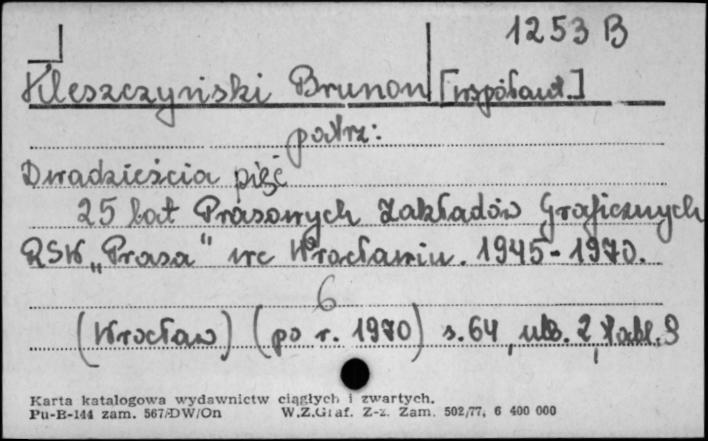 1253 B
Kleszczyński Brunon [współaut.]
patrz:
Dwadzieścia pięć
25 lat Prasowych Zakładów Graficznych
RSW „Prasa" we Wrocławiu. 1945-1970.
6
(Wrocław) (po r. 1970) s. 64, ulb. 2, tabl. 3
Karta katalogowa wydawnictw ciągłych i zwartych.
Pu-B-144 zam. 567/DW/On W.Z.Graf. Z-z. Zam. 502/77, 6 400 000